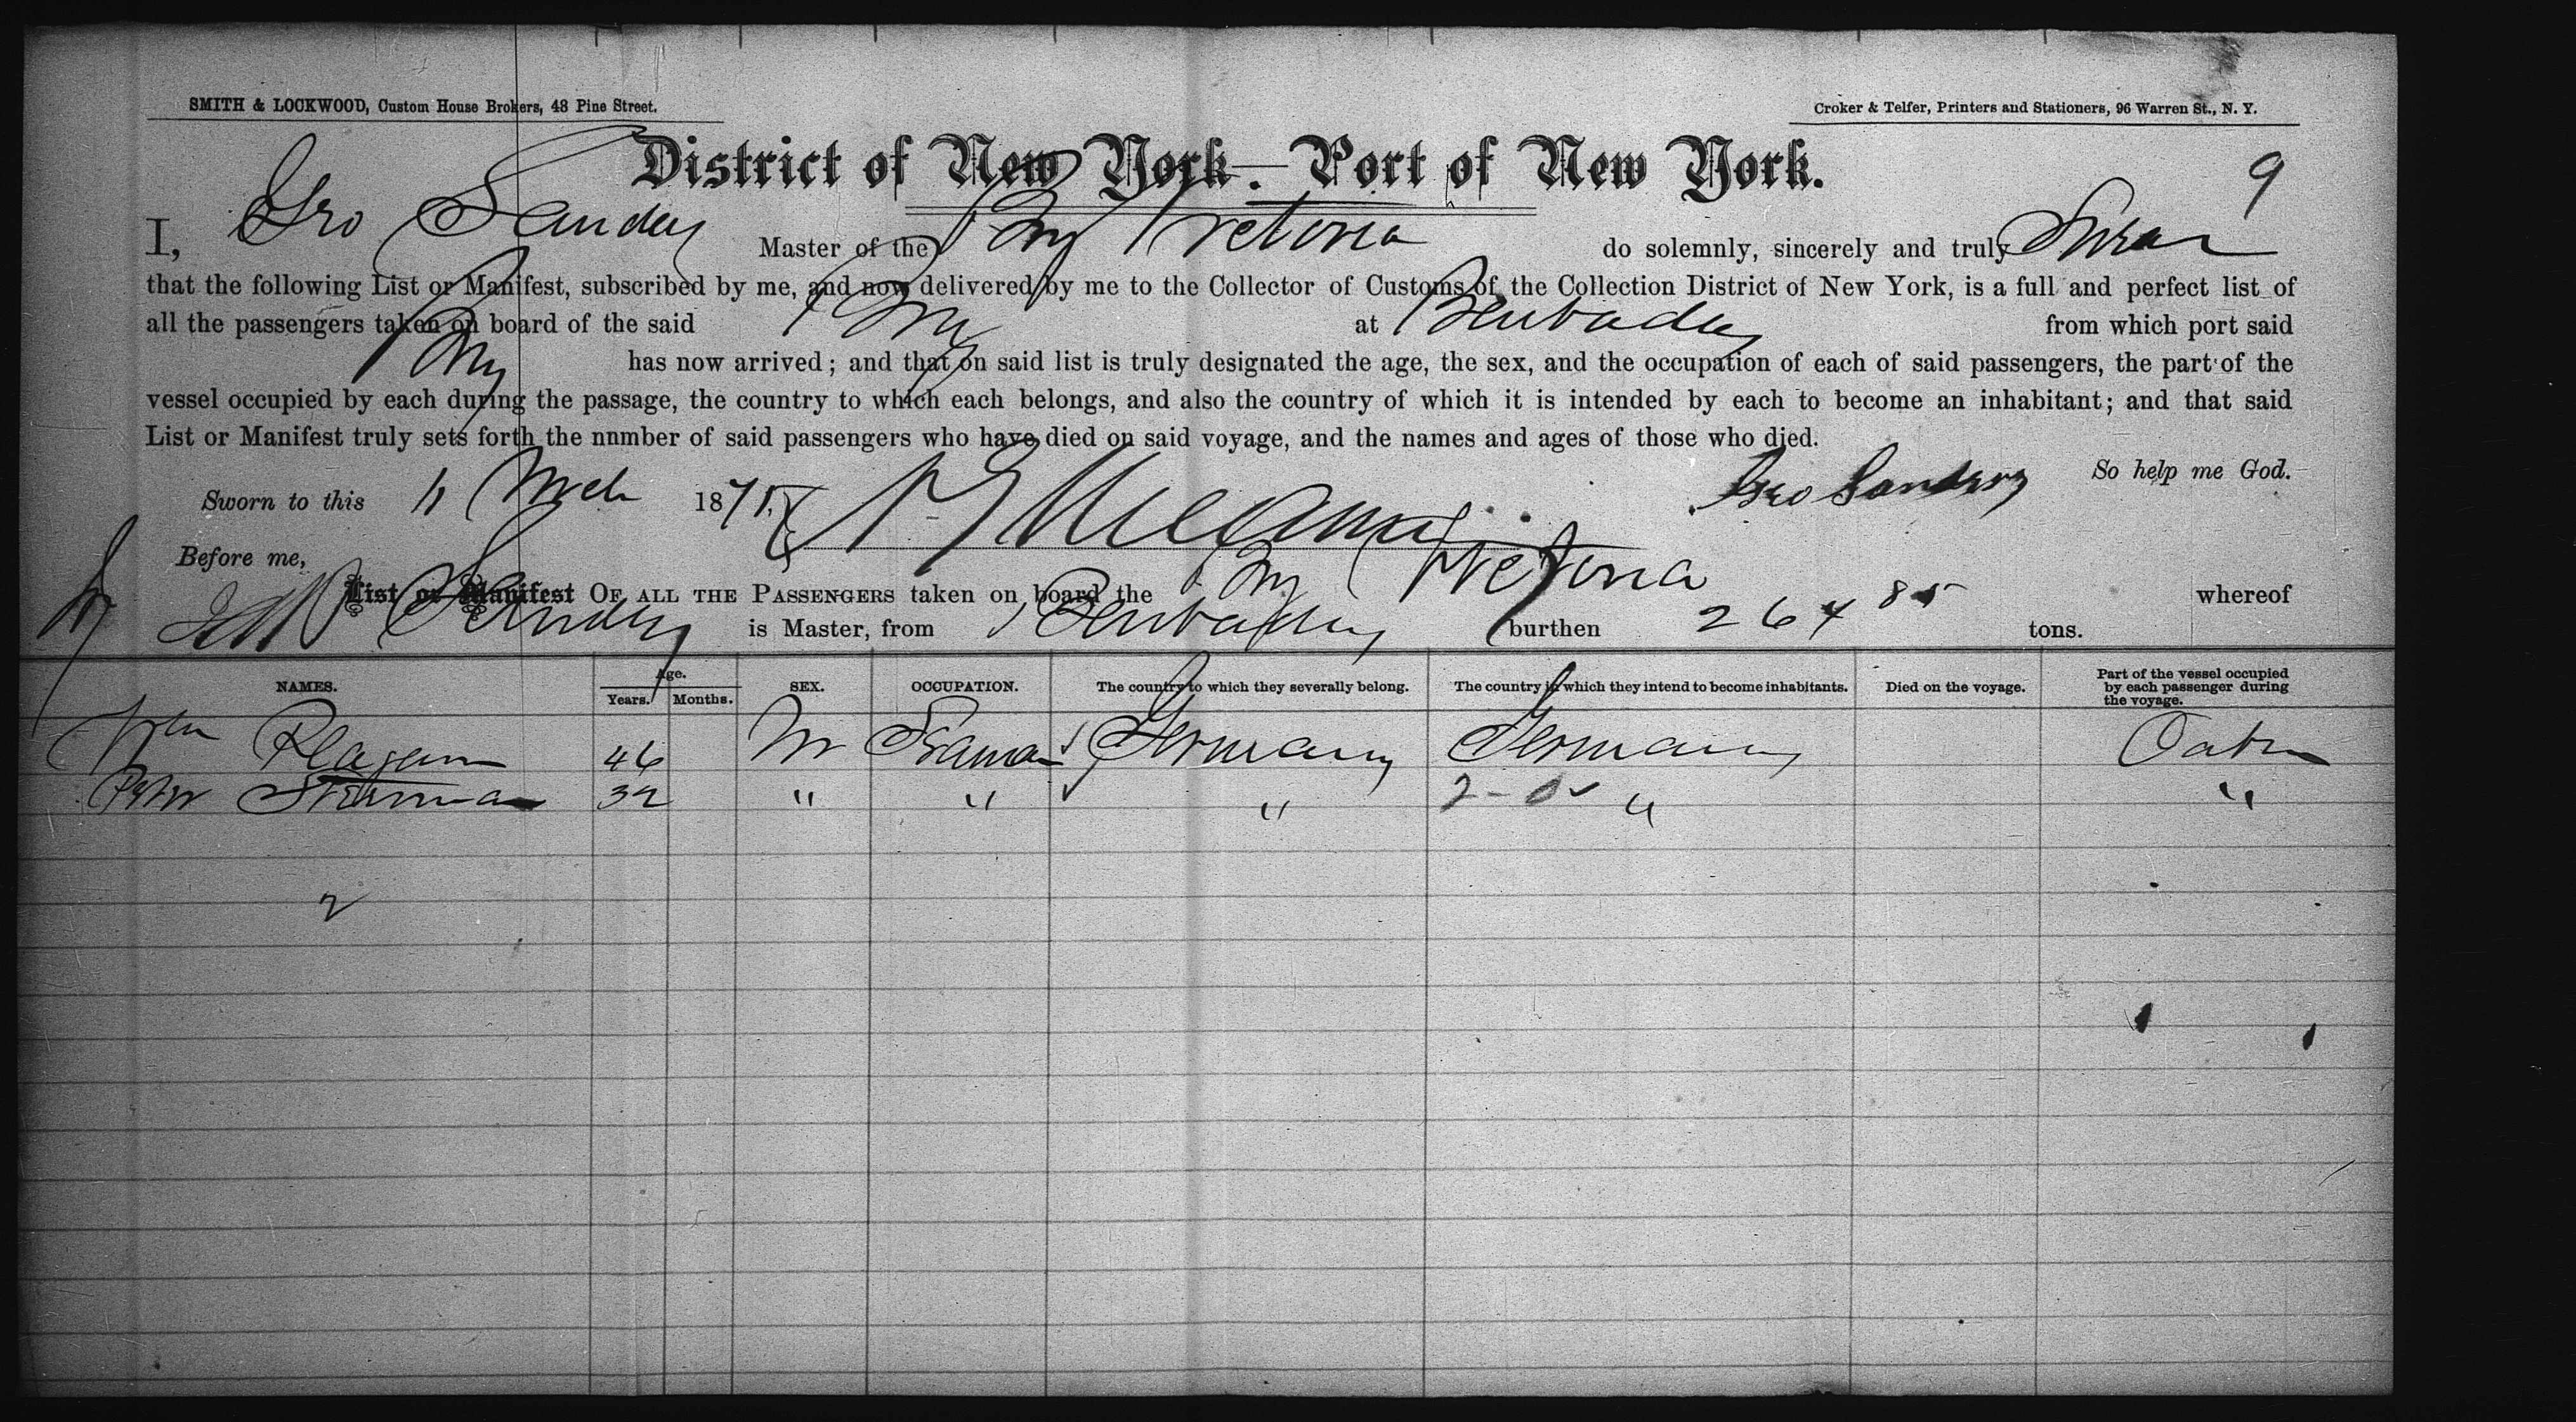 SMITH & LOCKWOOD, Custom House Brokers, 48 Pine Street.
Croker & Telfer, Printers and Stationers, 96 Warren St., N. Y.
District of New York — Port of New York.
9
I, Geo Sanders Master of the do solemnly, sincerely and truly Swear
that the following List or Manifest, subscribed by me, and now delivered by me to the Collector of Customs of the Collection District of New York, is a full and perfect list of
all the passengers taken on board of the said at Barbados from which port said
has now arrived; and that on said list is truly designated the age, the sex, and the occupation of each of said passengers, the part of the
vessel occupied by each during the passage, the country to which each belongs, and also the country of which it is intended by each to become an inhabitant; and that said
List or Manifest truly sets forth the nnmber of said passengers who have died on said voyage, and the names and ages of those who died.
So help me God.
Sworn to this 11 Mch 187 Geo Sanders
Before me,
List or Manifest OF ALL THE PASSENGERS taken on board the whereof
Sanders is Master, from Barbados burthen 264 85 tons.
NAMES. Age. Years. Months. SEX. OCCUPATION. The country to which they severally belong. The country in which they intend to become inhabitants. Died on the voyage. Part of the vessel occupied by each passenger during the voyage.
Wm 46 M Seaman Germany Germany Cabin
Peter 32 " " " 2 - " "
2